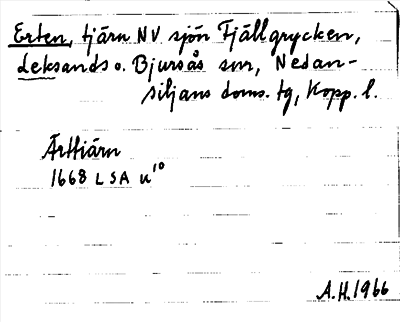 Erten, tjärn NV sjön Fjällgrycken,
Leksands o. Bjursås snr, Nedan-
siljans doms. tg, Kopp. l.
Ärttiärn
1668 LSA u¹⁰
A.H. 1966